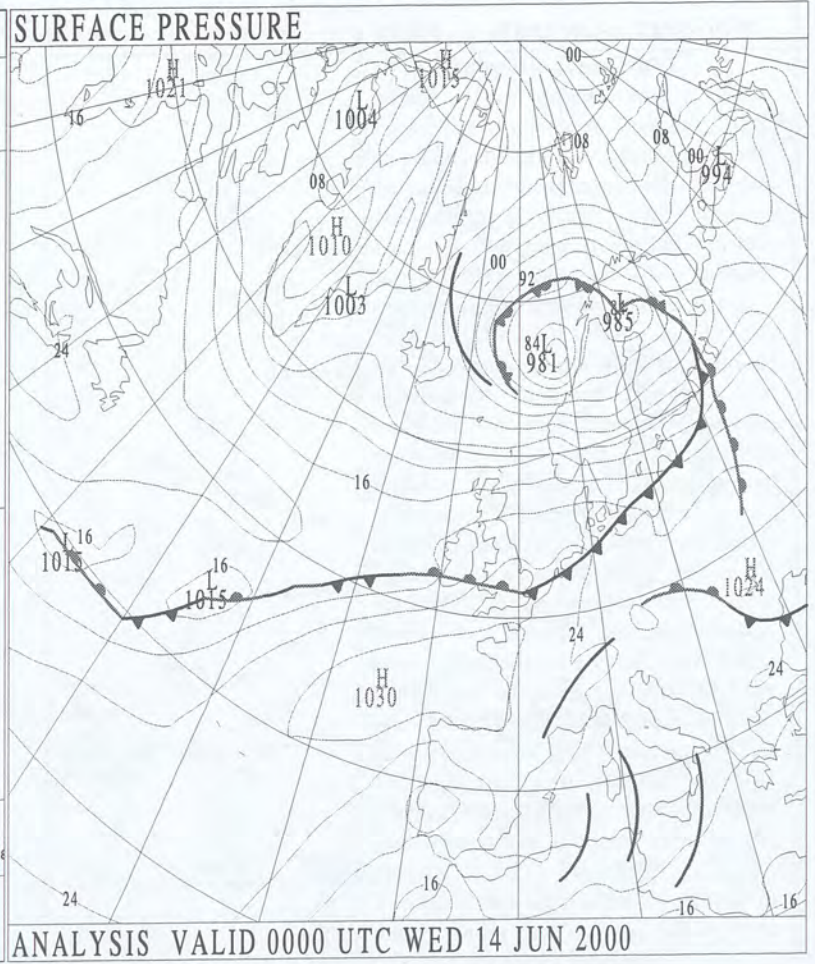 SURFACE PRESSURE
00
H
1015
H
1021
L
1004
16
08
08
00
L
994
08
H
1010
00
92
L
1003
L
985
84 L
981
24
16
16
L
1015
16
L
1015
H
1024
24
24
H
1030
16
24
16
16
ANALYSIS VALID 0000 UTC WED 14 JUN 2000